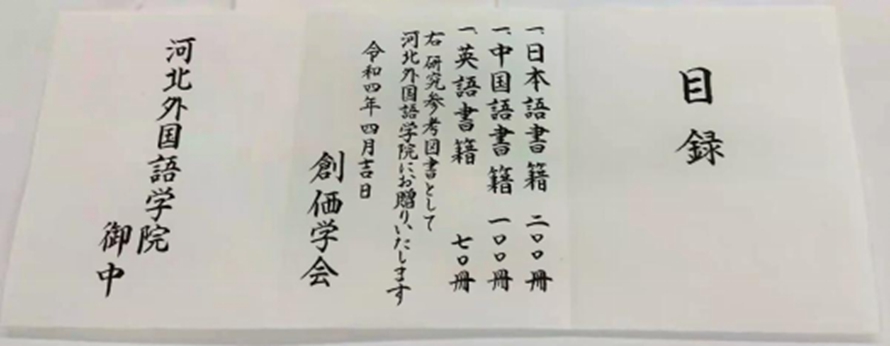 目録
一、日本語書籍 二〇〇冊
一、中国語書籍 一〇〇冊
一、英語書籍 七〇冊
右 研究参考図書として
河北外国語学院にお贈りいたします
令和四年四月吉日
創価学会
河北外国語学院
御中